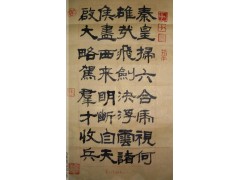 秦皇掃六合虎視何
雄哉飛劍決浮雲諸
侯盡西來明斷自天
啟大略駕羣才收兵